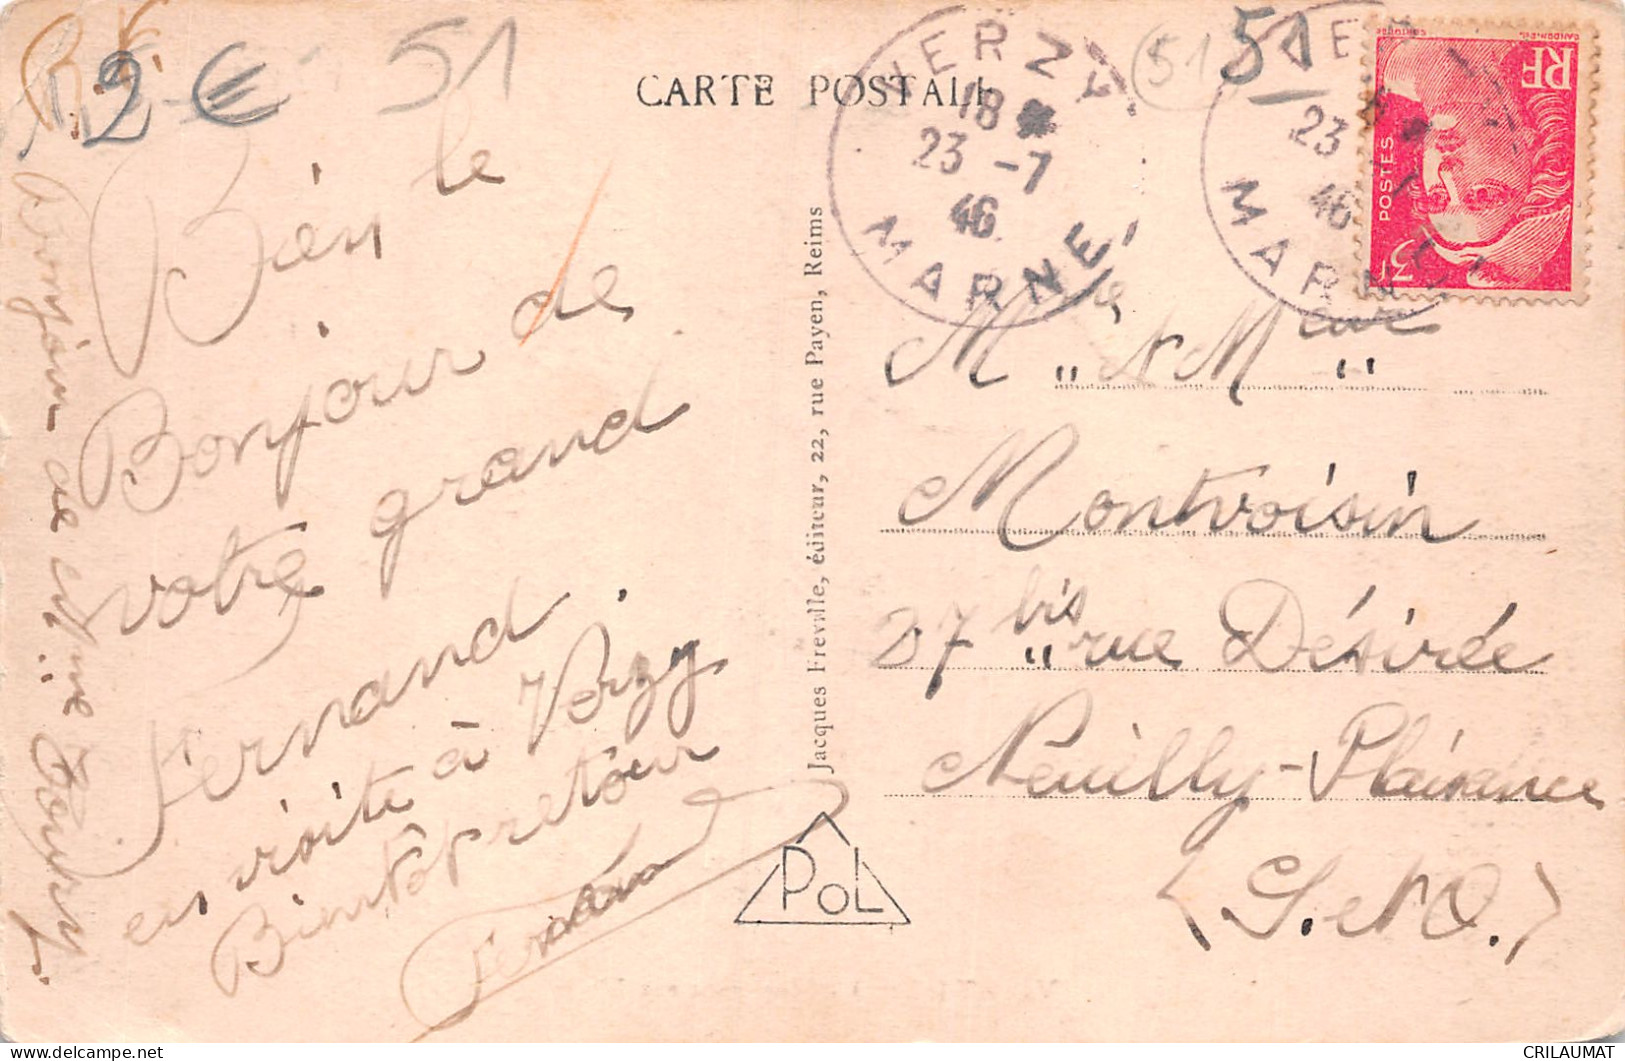 2 € 51
51
51
CARTE POSTALE
VERZY
18
23 -7
46
MARNE
23
46
MARNE
RF
POSTES
3F
Bien le
Bonjour de
votre grand
Fernand.
en visite à Verzy
Bientôt retour
Fernand
bonjour de
Jacques Freville, éditeur, 22, rue Payen, Reims
PoL
Mme & Mieur
Montvoisin
27 bis rue Désirée
Neuilly-Plaisance
(S. et O.)
CRILAUMAT